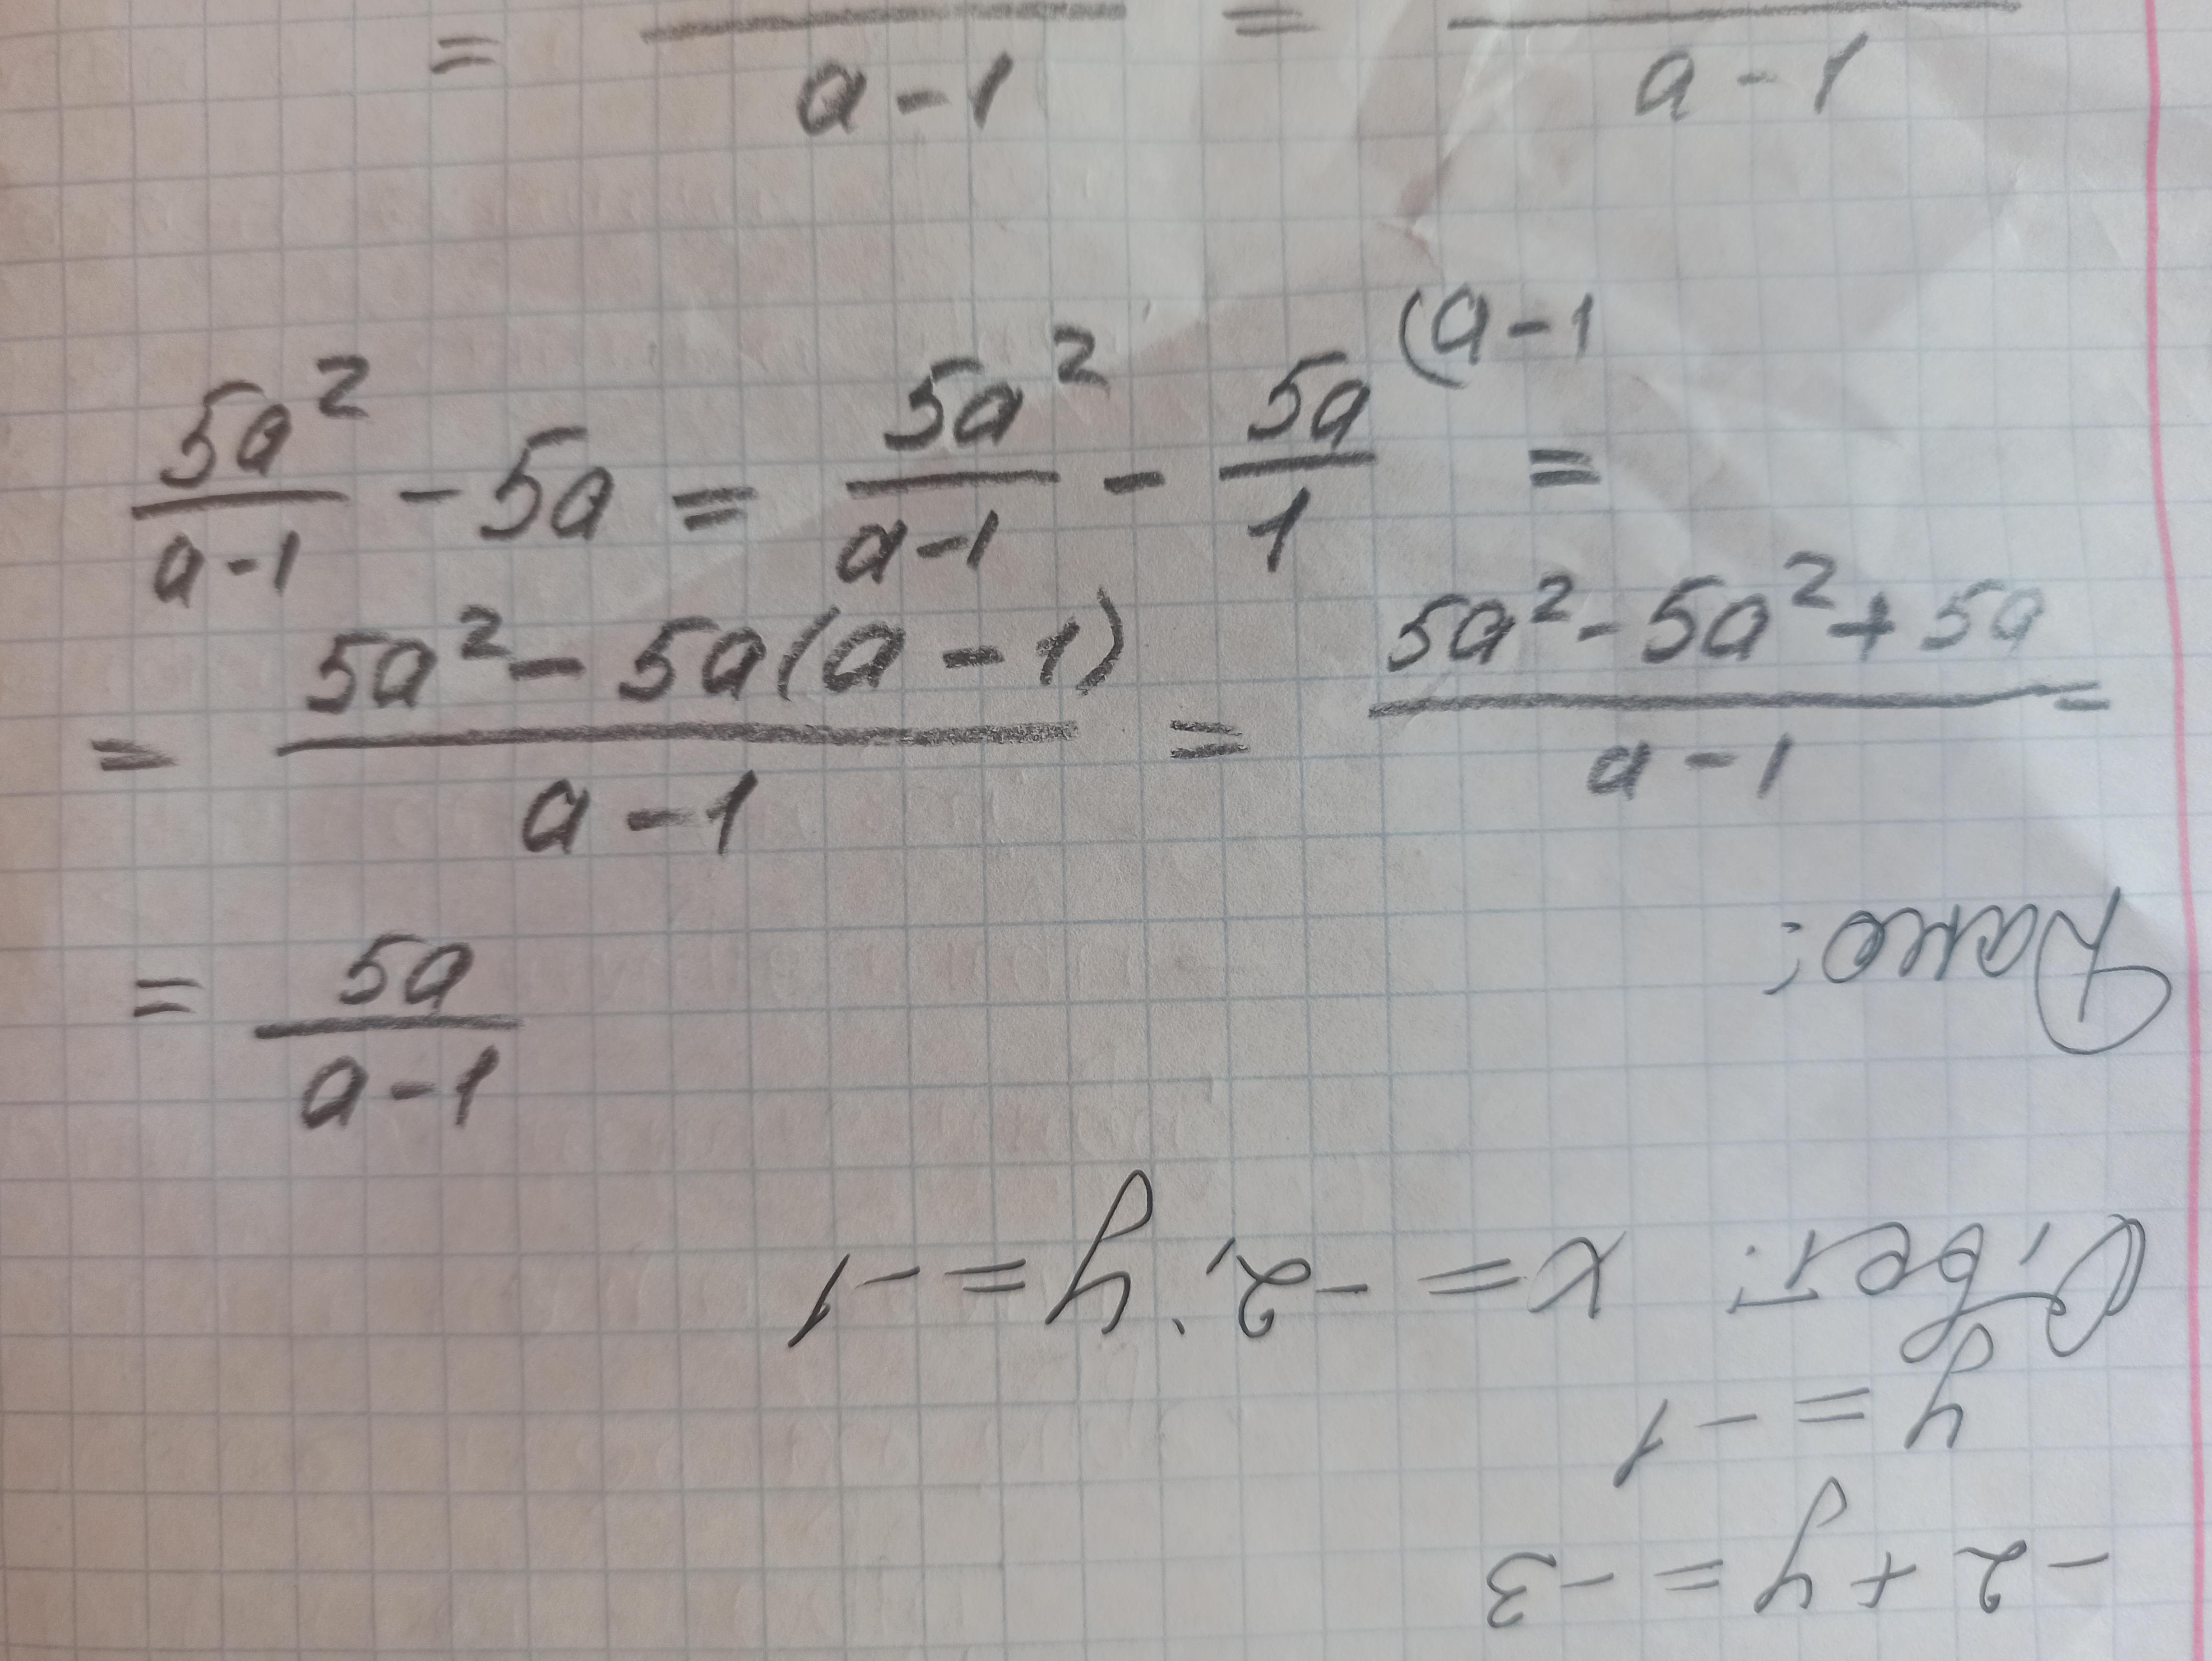 = ―― = ――
a-1 a-1
5a²/(a-1) - 5a = 5a²/(a-1) - 5a/1 (a-1 =
= (5a² - 5a(a-1))/(a-1) = (5a² - 5a² + 5a)/(a-1) =
= 5a/(a-1)
-2 + y = -3
y = -1
Ответ: x = -2; y = -1
Дано: